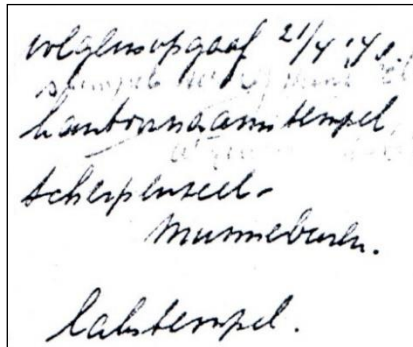 volgens opgaaf 21/4 '4
kantoornaamstempel
Scherpenzeel-
Munneburen.
Lakstempel.